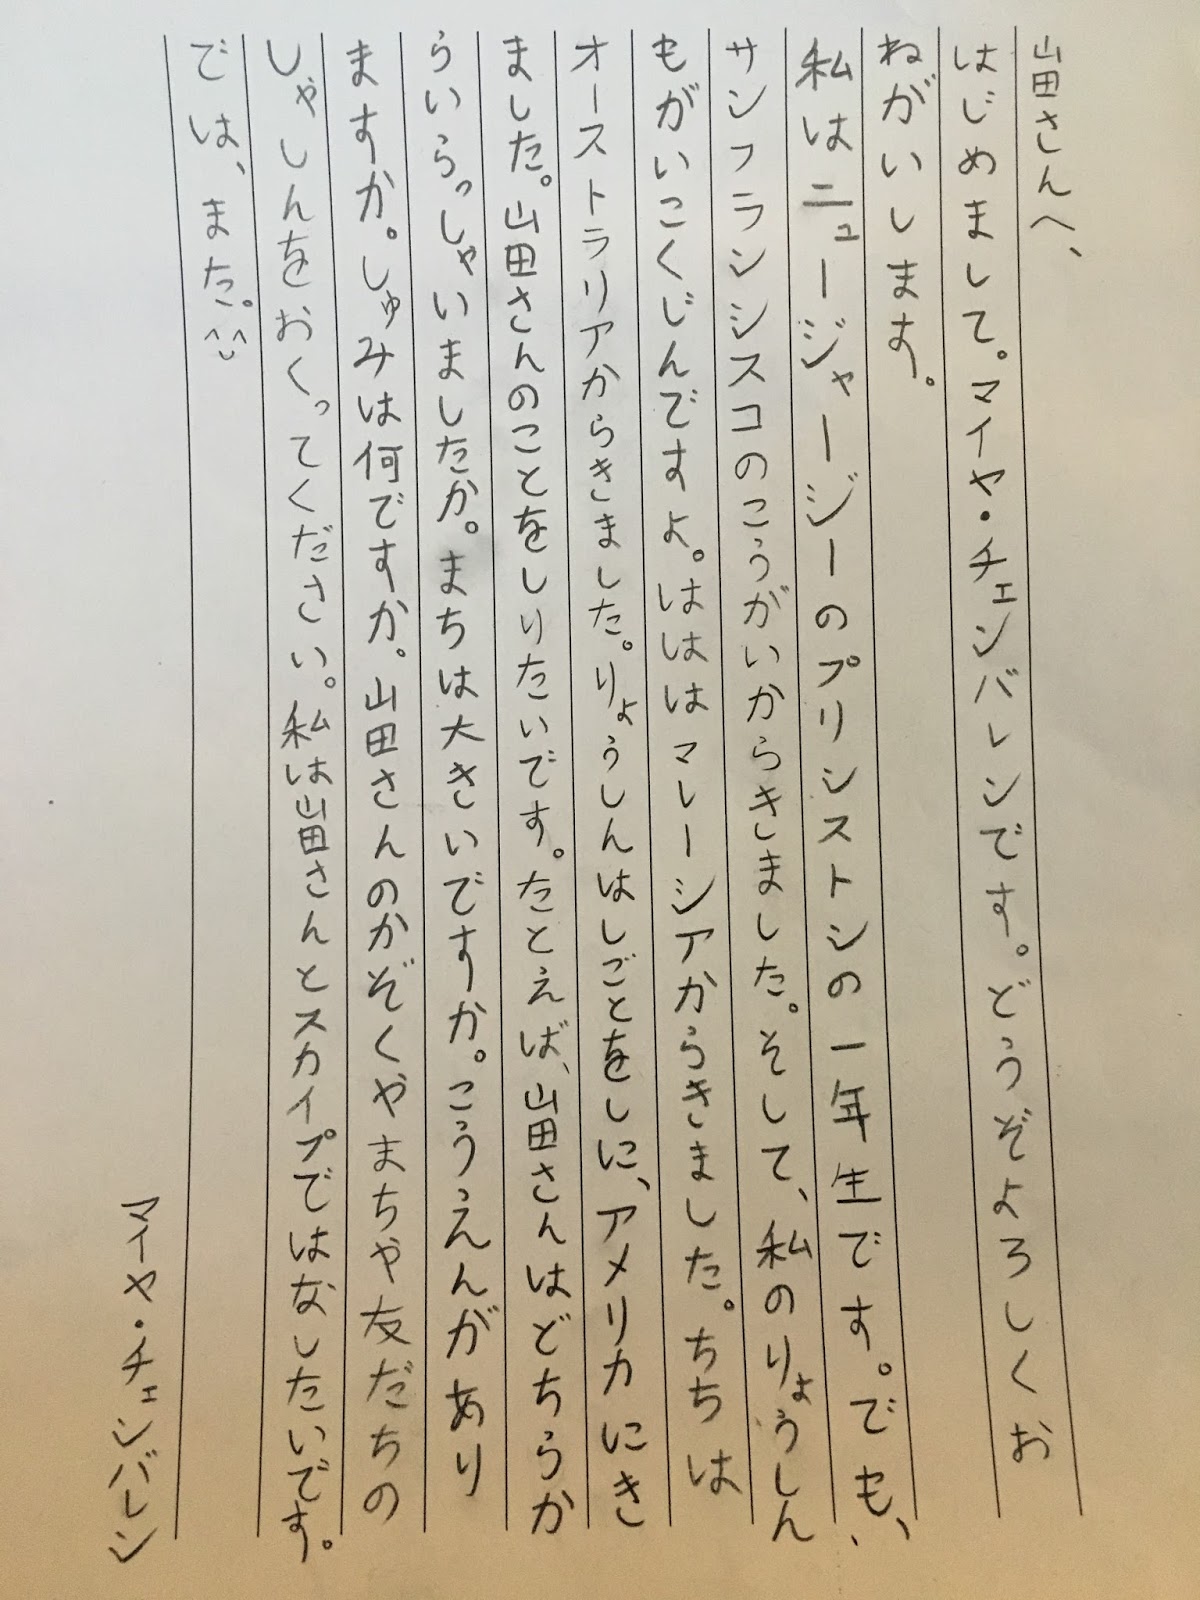 山田さんへ、
はじめまして。マイヤ・チェンバレンです。どうぞよろしくお
ねがいします。
私はニュージャージーのプリンストンの一年生です。でも、
サンフランシスコのこうがいからきました。そして、私のりょうしん
もがいこくじんですよ。はははマレーシアからきました。ちちは
オーストラリアからきました。りょうしんはしごとをしに、アメリカにき
ました。山田さんのことをしりたいです。たとえば、山田さんはどちらか
らいらっしゃいましたか。まちは大きいですか。こうえんがあり
ますか。しゅみは何ですか。山田さんのかぞくやまちや友だちの
しゃしんをおくってください。私は山田さんとスカイプではなしたいです。
では、また。^U^
マイヤ・チェンバレン